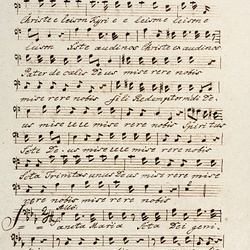 Christe eleison Kyri e e leison e leison e
leison Xste audi nos Christe exaudi nos
Pater de cœlis Deus mise rere nobis
mise rere nobis fili Redemptor mdi De-
us mise rere mise rere nobis Spiritus
Ste Deus mise rere nobis
Sta Trinitas unus Deus mise rere mise
rere nobis mise rere nobis
Sancta Maria Sta Dei geni-